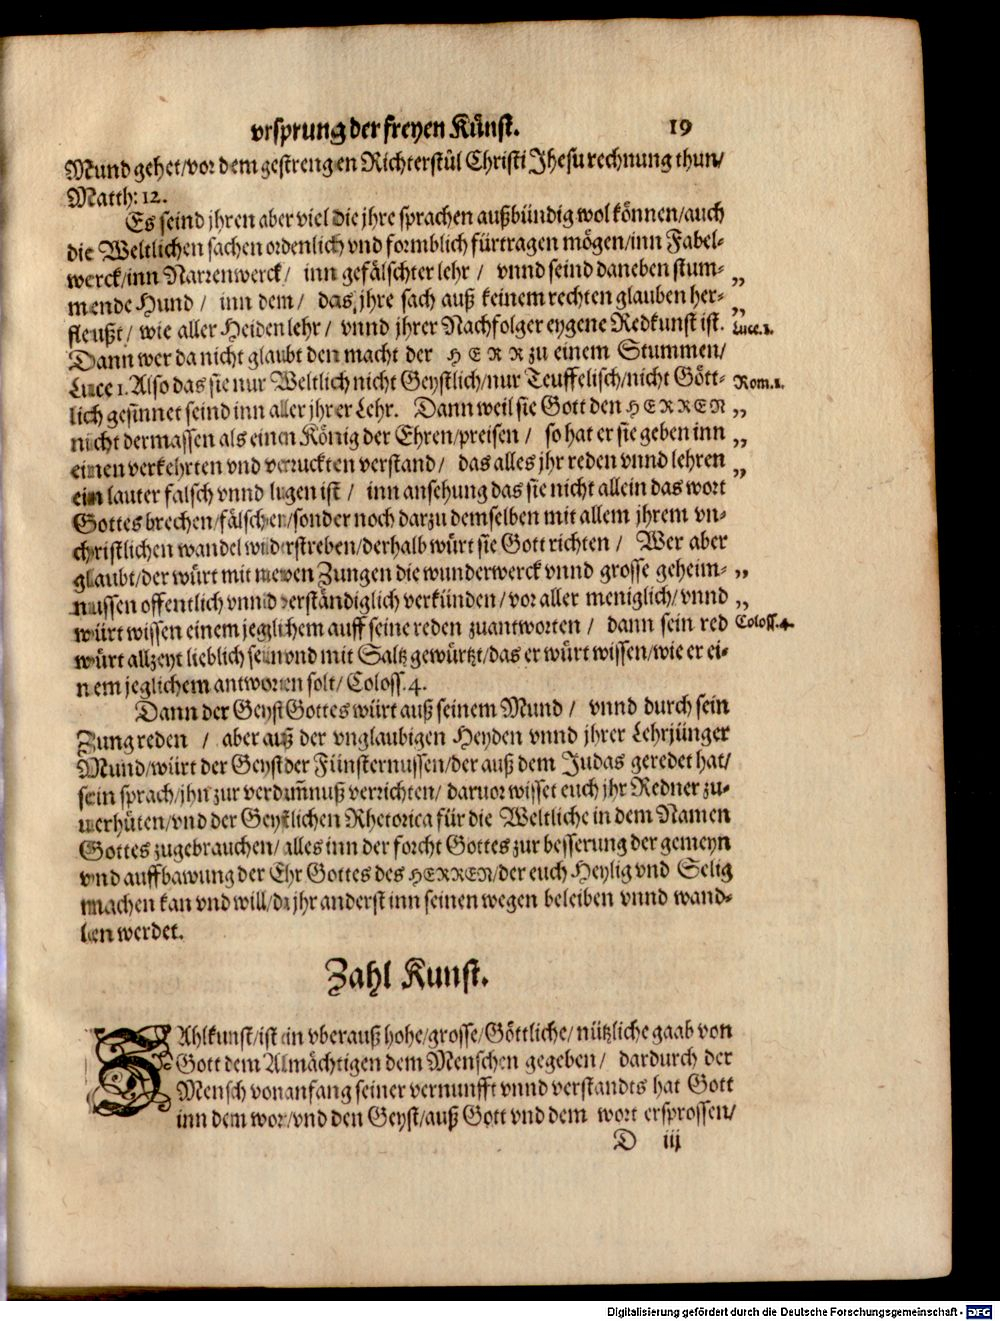 vrsprung der freyen Künst. 19
Mund gehet/vor dem gestrengen Richterstůl Christi Jhesu rechnung thun/
Matth: 12.
Es seind jhren aber viel die jhre sprachen außbündig wol können/auch
die Weltlichen sachen ordenlich vnd formblich fürtragen mögen/inn Fabel-
werck/inn Narrenwerck/ inn gefälschter lehr / vnnd seind daneben stum- „
mende Hund / inn dem/ das jhre sach auß keinem rechten glauben her- „
fleußt/ wie aller Heiden lehr/ vnnd jhrer Nachfolger eygene Redkunst ist. Luce.1.
Dann wer da nicht glaubt den macht der HERR zu einem Stummen/
Luce 1. Also das sie nur Weltlich nicht Geystlich/nur Teuffelisch/nicht Gött- Rom.1.
lich gesinnet seind inn aller jhrer Lehr. Dann weil sie Gott den HERREN „
nicht dermassen als einen König der Ehren/preisen / so hat er sie geben inn „
einen verkehrten vnd verruckten verstand/ das alles jhr reden vnnd lehren „
ein lauter falsch vnnd lugen ist / inn ansehung das sie nicht allein das wort
Gottes brechen/fälschen/sonder noch darzu demselben mit allem jhrem vn-
christlichen wandel widerstreben/derhalb würt sie Gott richten / Wer aber
glaubt/der würt mit newen Zungen die wunderwerck vnnd grosse geheim- „
nussen offentlich vnnd verständiglich verkünden/vor aller meniglich/vnnd „
würt wissen einem jeglichem auff seine reden zuantworten / dann sein red Coloss.4.
würt allzeyt lieblich sein vnd mit Saltz gewürtzt/das er würt wissen/wie er ei-
nem jeglichem antworten solt/Coloss.4.
Dann der Geyst Gottes würt auß seinem Mund / vnnd durch sein
Zung reden / aber auß der vnglaubigen Heyden vnnd jhrer Lehrjünger
Mund/würt der Geyst der Fünsternussen/der auß dem Judas geredet hat/
sein sprach/jhn zur verdam̃nuß verrichten/ daruor wisset euch jhr Redner zu-
uerhüten/vnd der Geystlichen Rhetorica für die Weltliche in dem Namen
Gottes zugebrauchen/alles inn der forcht Gottes zur besserung der gemeyn
vnd auffbawung der Ehr Gottes des HERREN/der euch Heylig vnd Selig
machen kan vnd will/da jhr anderst inn seinen wegen beleiben vnnd wand-
len werdet.
Zahl Kunst.
ZAhlkunst/ist ein vberauß hohe/grosse/Göttliche/nützliche gaab von
Gott dem Almächtigen dem Menschen gegeben/ dardurch der
Mensch von anfang seiner vernunfft vnnd verstandts hat Gott
inn dem wort/vnd den Geyst/auß Gott vnd dem wort ersprossen/
D iij
Digitalisierung gefördert durch die Deutsche Forschungsgemeinschaft - DFG